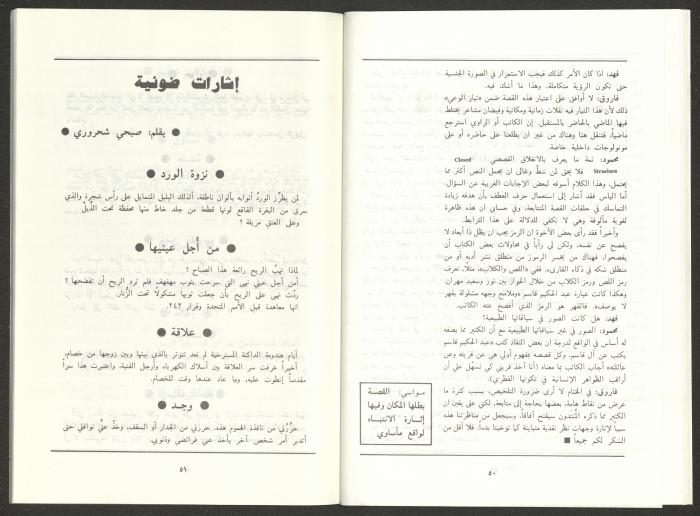 فهد: اذا كان الأمر كذلك فيجب الاستمرار في الصورة الجنسية
حتى تكون الرؤية متكاملة. وهذا ما أشك فيه.
فاروق: لا أوافق على إعتبار هذه القصة ضمن «تيار الوعي»
ذلك لأن هذا التيار فيه نقلات زمانية ومكانية وفيضان مشاعر يختلط
فيها الماضي بالحاضر بالمستقبل. إن الكاتب أو الراوي استرجع
ماضياً، فتنقل هنا وهناك من غير ان يطلعنا على حاضره أو على
مونولوجات داخلية خاصة.
محمود: ثمة ما يعرف بالانغلاق القصصي Closed
Structure فلا يحق لمن شطّ وغالى ان يحمل النص أكثر مما
يحتمل، وهذا الكلام أسوقه لبعض الإجابات الغريبة عن السؤال.
أما الياس فقد أشار إلى استعمال حرف العطف بأن هدفه زيادة
التماسك في حلقات القصة المتتابعة، وفي حسابي ان هذه ظاهرة
لغوية مألوفة وهي لا تكفي للدلالة على هذا الترابط.
وأخيراً فقد رأى بعض الأخوة ان الرمز يجب ان يظل ذا أبعاد لا
يفصح عن نفسه، ولكن لي رأياً في محاولات بعض الكتّاب أن
يفصحوا، فهناك من يخسر الرموز من منطلق نشر أدبه أو من
منطلق شكه في ذكاء القارىء. ففي «اللص والكلاب» مثلاً، نعرف
رمز اللص ورمز الكلاب من خلال الحوار بين نور وسعيد مهران.
وهكذا كانت عبارة عبد الحكيم قاسم «وملامح وجهه مشغولة بقهر
لا يوصف». فالقهر هو الرمز الذي أفصح عنه الكاتب.
فهد: هل كانت الصور في سياقاتها الطبيعية؟
محمود: الصور في غير سياقاتها الطبيعية مع أن الكثير مما يصفه
له أساس في الواقع لدرجة ان بعض النقاد كتب «عبد الحكيم قاسم
يكتب عن آل قاسم، وكل قصصه بمفهوم أولي هي عن قريته وعن
عائلته» أجاب الكاتب بما معناه (أنا آخذ قريتي كي تسهّل على أن
أراقب الظواهر الإنسانية في تكونها الفطري).
فاروق: في الختام لا أرى ضرورة التلخيص، بسبب كثرة ما
عرض من نقاط هامة، بعضها بحاجة إلى متابعة. لكني على يقين ان
الكثير مما ذكره المنتدون سيفتح آفاقاً، وسيجعل من مناظرتنا هذه
سبباً لإثارة وجهات نظر نقدية متباينة كما توخينا بدءاً. فلا أقل من
الشكر لكم جميعاً ■
مواسي: القصة
بطلها المكان وفيها
إثارة الانتباه
لواقع مأساوي
٥٠
إشارات ضوئية
● بقلم: صبحي شحروري ●
● نزوة الورد ●
لمن يطرّز الوردُ أثوابه بألوان ناطقة، ألذلك البلبل المتمايل على رأس شجرة والذي
سرق من البقرة الفاقع لونها قطعة من جلد خاط منها محفظة تحت الذيل
وعلى العنق مزيلة ؟
● من أجل عينيها ●
لماذا تهبّ الريح رائعة هذا الصباح ؟
من أجل عيني نهى التي سرحت بثوب مهفهف فلم ترد الريح أن تفضحها ؟
ردّت نهى على الريح بأن جعلت ثوبها مشكولاً تحت الزُنّار.
انها معاهدة قبل الأمم المتحدة وقرار ٢٤٢.
● علاقة ●
أيام هندومة الداكنة المسترخية لم تعد تتوتر بالذي بينها وبين زوجها من خصام.
أخيراً عرفت سر العلاقة بين أسلاك الكهرباء وأرجل الفتية، واعتبرت هذا سراً
مقدساً إنطوت عليه، وما عاد عندها وقت للخصام.
● وجد ●
حرّرني من نافذة الهموم هذه. حررني من الجدار أو السقف، وخذ عليّ نوافلي حتى
أتدبر أمر شخص آخر يأخذ عني فرائضي وذنوبي.
٥١